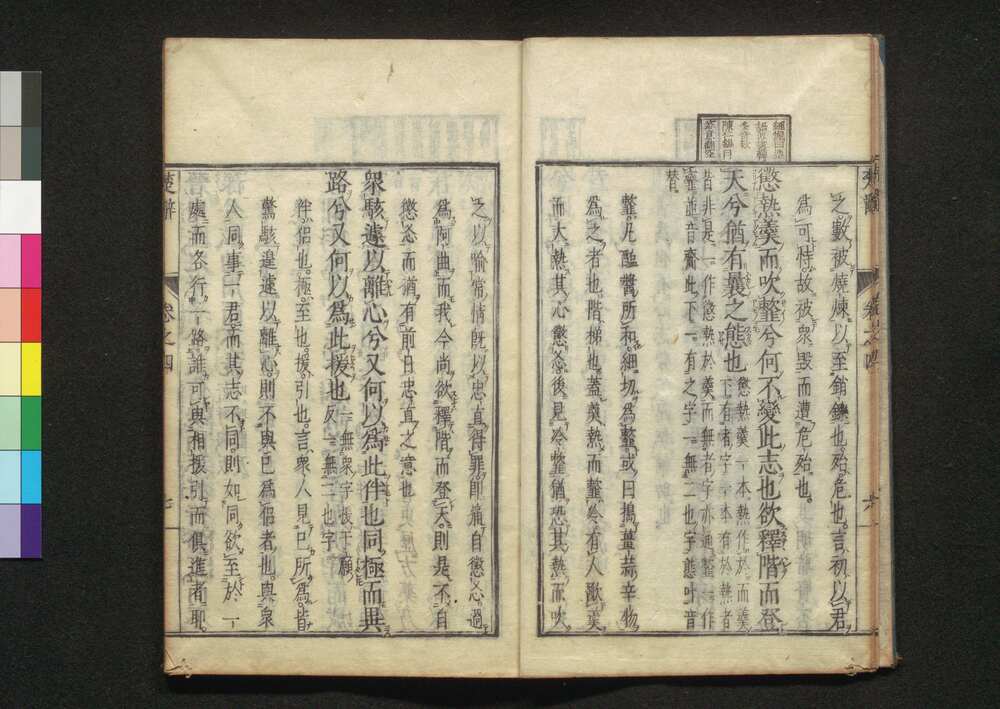 之數被燒煉以至銷鑠也殆危也言初以君
爲可恃故被衆毀而遭危殆也
懲熱羹而吹䪠兮何不變此志也欲釋階而登
天兮猶有曩之態也
懲熱羹一本熱作於而羹
下有者字一本有於熱者
昔非是一作懲熱於羹而無者字亦通䪠一作
音齋此下一有之字一無二也字態叶音
替
䪠凡醢醬所和細切爲䪠或曰擣薑蒜辛物
爲之者也階梯也蓋羹熱而䪠冷有人歠羹
而太熱其心懲㣻後見冷䪠猶恐其熱而吹
之以喻常情既以忠直得罪即痛自懲㣻過
爲阿曲而我今尚欲釋階而登天則是不自
懲㣻而猶有前日忠直之意也
衆駭遽以離心兮又何以爲此伴也同極而異
路兮又何以爲此援也
一無衆字援于願
反一無二也字
伴侶也極至也援引也言衆人見己所爲皆
驚駭遑遽以離心則不與己爲侶者也與衆
人同事一君而其志不同則如同欲至於一
處而各行一路誰可與相援引而俱進者耶
楚辭
卷之四
七